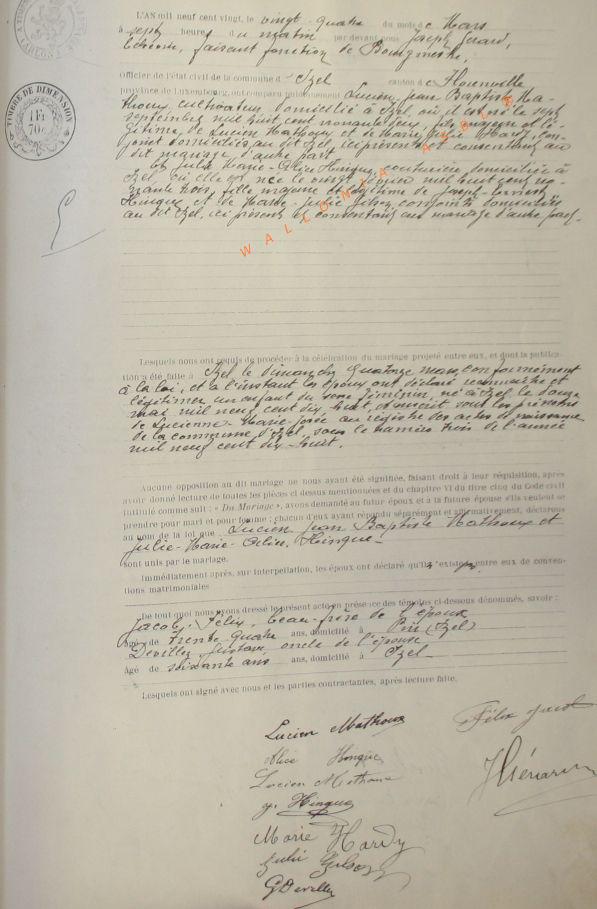 TIMBRE DE DIMENSION
1 Fr
70 c
L'AN mil neuf cent vingt, le vingt-quatre du mois de Mars
à sept heures du matin par devant nous Joseph
échevin, faisant fonction de Bourgmestre,
Officier de l'état civil de la commune d'Izel, canton de Florenville
province de Luxembourg, ont comparu publiquement Lucien, Jean Baptiste Ma-
thoux, cultivateur, domicilié à Izel, où il est né le sept
septembre mil huit cent nonante deux, fils majeur et lé-
gitime de Lucien Mathoux et de Marie Hardy, con-
joints domiciliés au dit Izel, ici présents et consentant au
dit mariage d'une part
et Julie-Marie-Aline Hinque, couturière, domiciliée à
Izel où elle est née le vingt mil huit cent no-
nante trois, fille majeure et légitime de Joseph
Hinque et de Marie-Julie Gilson, conjoints domiciliés
au dit Izel, ici présents et consentant au mariage d'autre part.
WALLONIA ARBLE
Lesquels nous ont requis de procéder à la célébration du mariage projeté entre eux, et dont la publica-
tion a été faite à Izel, le dimanche quatorze mars, conformément
à la loi, et à l'instant les époux ont déclaré reconnaître et
légitimer un enfant du sexe féminin, né à Izel le douze
mai mil neuf cent dix huit, et inscrit sous les prénoms
de Lucienne-Marie-Josée au registre des actes de naissance
de la commune d'Izel, sous le numéro trois de l'année
mil neuf cent dix-huit.
Aucune opposition au dit mariage ne nous ayant été signifiée, faisant droit à leur réquisition, après
avoir donné lecture de toutes les pièces ci dessus mentionnées et du chapitre VI du titre cinq du Code civil
intitulé comme suit : « Du Mariage », avons demandé au futur époux et à la future épouse s'ils veulent se
prendre pour mari et pour femme ; chacun d'eux ayant répondu séparément et affirmativement, déclarons
au nom de la loi que Lucien Jean Baptiste Mathoux et
Julie-Marie-Aline Hinque
sont unis par le mariage.
Immédiatement après, sur interpellation, les époux ont déclaré qu'il existe entre eux de conven-
tions matrimoniales
De tout quoi nous avons dressé le présent acte en présence des témoins ci-dessous dénommés, savoir :
Jacob, Félix, beau-frère de l'époux
âgé de trente quatre ans, domicilié à Pin (Izel)
Devillez Gustave, oncle de l'épouse
âgé de soixante ans, domicilié à Izel
Lesquels ont signé avec nous et les parties contractantes, après lecture faite.
Lucien Mathoux Félix Jacob
Alice Hinque
Lucien Mathoux
J. Hinque
Marie Hardy
Julie Gilson
G Devillez